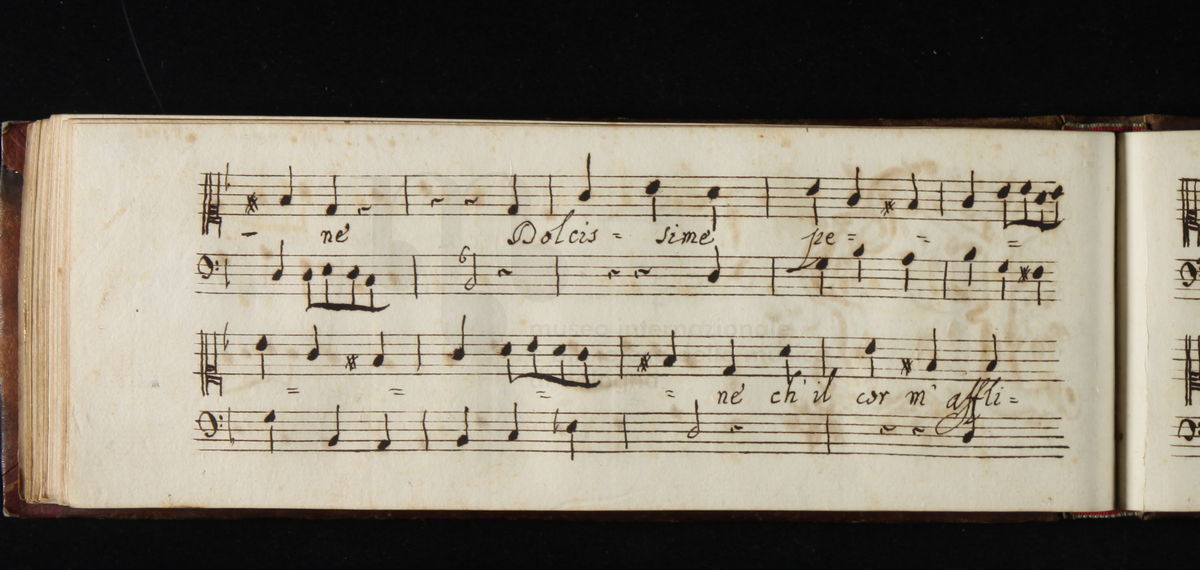 - ne Dolcis = sime pe = = =
6
museo internazionale
= = = = ne ch'il cor m' affli =